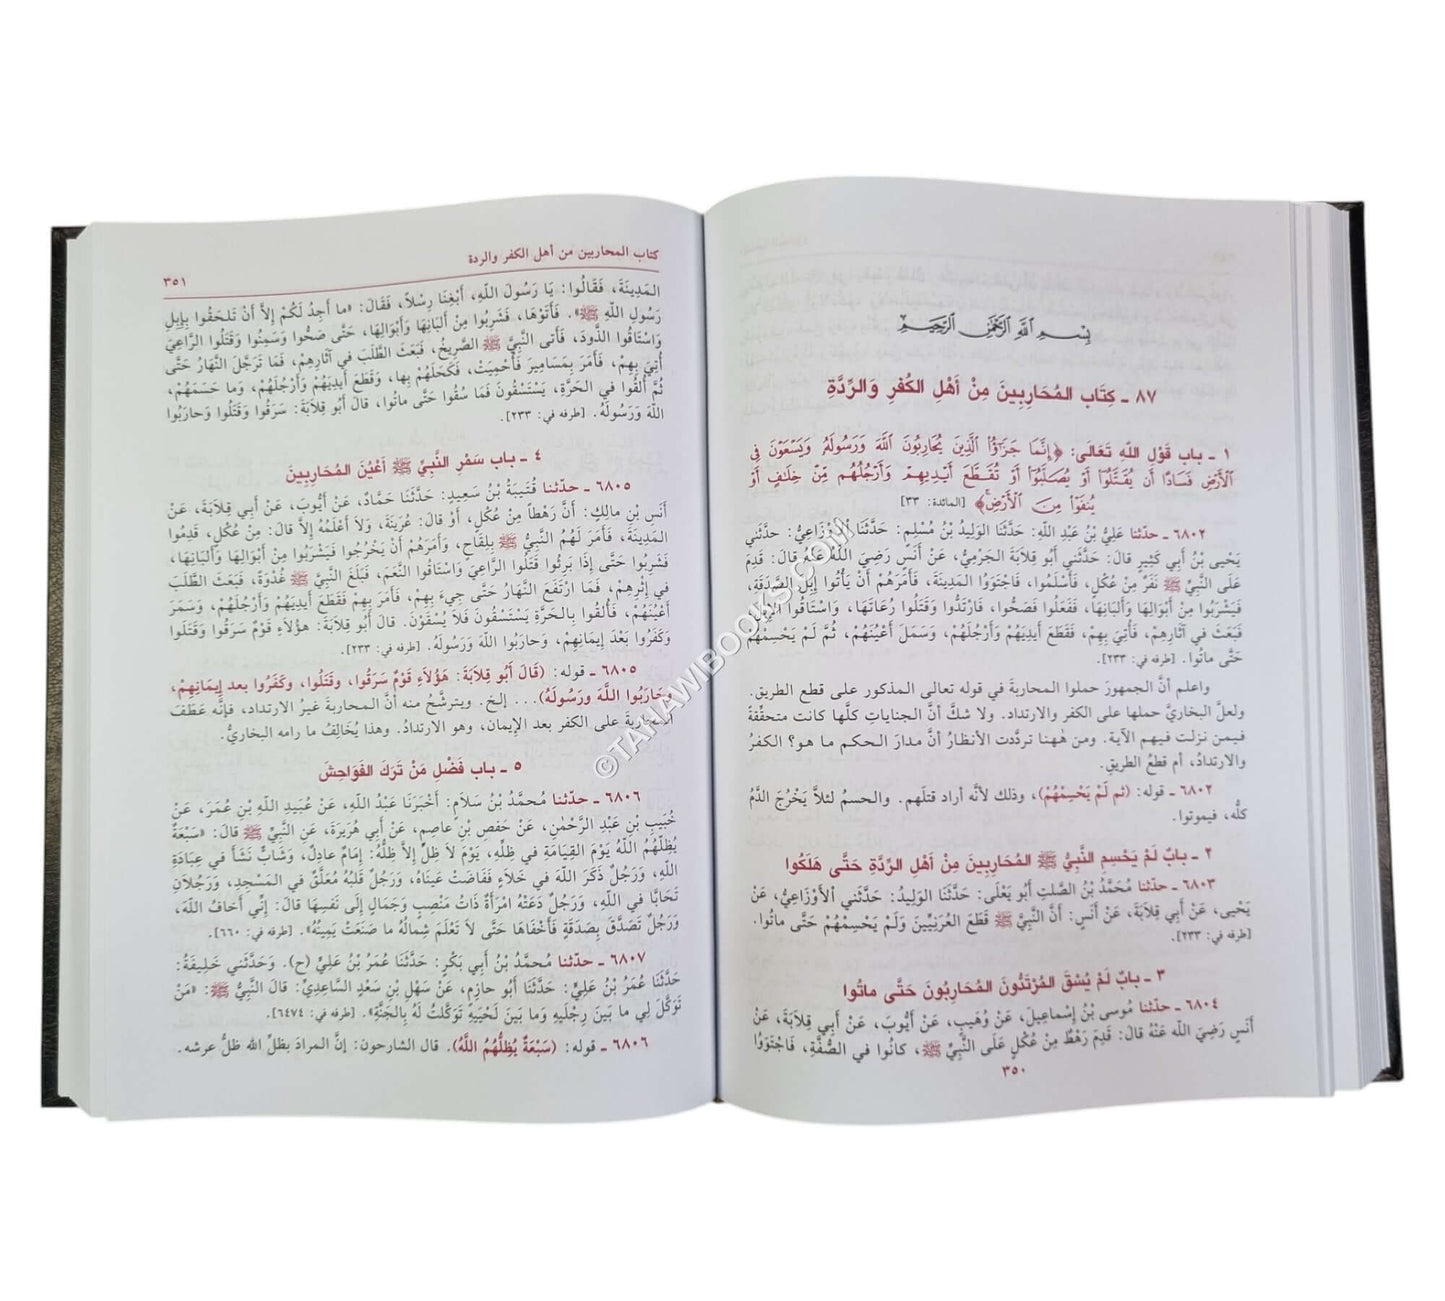 بِسْمِ اللَّهِ الرَّحْمَٰنِ الرَّحِيمِ
٨٧ ـ كِتَاب المُحَارِبِينَ مِنْ أَهْلِ الكُفْرِ وَالرِّدَّةِ
١ ـ باب قَوْلِ اللّهِ تَعَالَى: ﴿إِنَّمَا جَزَٰٓؤُا۟ ٱلَّذِينَ يُحَارِبُونَ ٱللَّهَ وَرَسُولَهُۥ وَيَسْعَوْنَ فِى
ٱلْأَرْضِ فَسَادًا أَن يُقَتَّلُوٓا۟ أَوْ يُصَلَّبُوٓا۟ أَوْ تُقَطَّعَ أَيْدِيهِمْ وَأَرْجُلُهُم مِّنْ خِلَٰفٍ أَوْ
يُنفَوْا۟ مِنَ ٱلْأَرْضِ﴾ [المائدة: ٣٣]
٦٨٠٢ ـ حدّثنا عَلِيُّ بْنُ عَبْدِ اللّهِ: حَدَّثَنَا الوَلِيدُ بْنُ مُسْلِمٍ: حَدَّثَنَا الأَوْزَاعِيُّ: حَدَّثَنِي
يَحْيى بْنُ أَبِي كَثِيرٍ قالَ: حَدَّثَنِي أَبُو قِلاَبَةَ الجَرْمِيُّ، عَنْ أَنَسٍ رَضِيَ اللّهُ عَنْهُ قالَ: قَدِمَ
عَلَى النَّبِيِّ ﷺ نَفَرٌ مِنْ عُكْلٍ، فَأَسْلَمُوا، فَاجْتَوَوُا المَدِينَةَ، فَأَمَرَهُمْ أَنْ يَأْتُوا إِبِلَ الصَّدَقَةِ،
فَيَشْرَبُوا مِنْ أَبْوَالِهَا وَأَلْبَانِهَا، فَفَعَلُوا فَصَحُّوا، فَارْتَدُّوا وَقَتَلُوا رُعَاتَهَا، وَاسْتَاقُوا الإِبِلَ،
فَبَعَثَ في آثَارِهِمْ، فَأُتِيَ بِهِمْ، فَقَطَعَ أَيْدِيَهُمْ وَأَرْجُلَهُمْ، وَسَمَلَ أَعْيُنَهُمْ، ثُمَّ لَمْ يَحْسِمْهُمْ
حَتَّى ماتُوا. [طرفه في: ٢٣٣].
واعلم أنَّ الجمهورَ حملوا المحاربةَ في قوله تعالى المذكور على قطع الطريق.
ولعلَّ البخاريَّ حملها على الكفر والارتداد. ولا شكَّ أنَّ الجناياتِ كلَّها كانت متحقِّقةً
فيمن نزلت فيهم الآية. ومن هٰهنا تردَّدت الأنظارُ أنَّ مدارَ الحكم ما هو؟ الكفرُ
والارتدادُ، أم قطعُ الطريقِ.
٦٨٠٢ ـ قوله: (ثم لَمْ يَحْسِمْهُمْ)، وذلك لأنَّه أراد قتلَهم. والحسمُ لئلاَّ يَخْرُجَ الدَّمُ
كلُّه، فيموتوا.
٢ ـ بابٌ لَمْ يَحْسِمِ النَّبِيُّ ﷺ المُحَارِبِينَ مِنْ أَهْلِ الرِّدَّةِ حَتَّى هَلَكُوا
٦٨٠٣ ـ حدّثنا مُحَمَّدُ بْنُ الصَّلتِ أَبُو يَعْلَى: حَدَّثَنَا الوَلِيدُ: حَدَّثَنِي الأَوْزَاعِيُّ، عَنْ
يَحْيى، عَنْ أَبِي قِلاَبَةَ، عَنْ أَنَسٍ: أَنَّ النَّبِيَّ ﷺ قَطَعَ العُرَنِيِّينَ وَلَمْ يَحْسِمْهُمْ حَتَّى ماتُوا.
[طرفه في: ٢٣٣].
٣ ـ بابٌ لَمْ يُسْقَ المُرْتَدُّونَ المُحَارِبُونَ حَتَّى ماتُوا
٦٨٠٤ ـ حدّثنا مُوسى بْنُ إِسْماعِيلَ، عَنْ وُهَيبٍ، عَنْ أَيُّوبَ، عَنْ أَبِي قِلاَبَةَ، عَنْ
أَنَسٍ رَضِيَ اللّهُ عَنْهُ قالَ: قَدِمَ رَهْطٌ مِنْ عُكْلٍ عَلَى النَّبِيِّ ﷺ، كانُوا في الصُّفَّةِ، فَاجْتَوَوُا
٣٥٠
كتاب المحاربين من أهل الكفر والردة
٣٥١
المَدِينَةَ، فَقَالُوا: يَا رَسُولَ اللّهِ، أَبْغِنَا رِسْلاً، فَقَالَ: «ما أَجِدُ لَكُمْ إِلاَّ أَنْ تَلحَقُوا بِإِبِلِ
رَسُولِ اللّهِ ﷺ». فَأَتَوْهَا، فَشَرِبُوا مِنْ أَلبَانِهَا وَأَبْوَالِهَا، حَتَّى صَحُّوا وَسَمِنُوا وَقَتَلُوا الرَّاعِيَ
وَاسْتَاقُوا الذَّوْدَ، فَأَتى النَّبِيَّ ﷺ الصَّرِيخُ، فَبَعَثَ الطَّلَبَ في آثارِهِمْ، فَمَا تَرَجَّلَ النَّهَارُ حَتَّى
أُتِيَ بِهِمْ، فَأَمَرَ بِمَسَامِيرَ فَأُحْمِيَتْ، فَكَحَلَهُمْ بِها، وَقَطَعَ أَيْدِيَهُمْ وَأَرْجُلَهُمْ، وَما حَسَمَهُمْ،
ثُمَّ أُلقُوا في الحَرَّةِ، يَسْتَسْقُونَ فَمَا سُقُوا حَتَّى ماتُوا، قالَ أَبُو قِلاَبَةَ: سَرَقُوا وَقَتَلُوا وَحارَبُوا
اللّهَ وَرَسُولَهُ. [طرفه في: ٢٣٣].
٤ ـ باب سَمْرِ النَّبِيِّ ﷺ أَعْيُنَ المُحَارِبِينَ
٦٨٠٥ ـ حدّثنا قُتَيبَةُ بْنُ سَعِيدٍ: حَدَّثَنَا حَمَّادٌ، عَنْ أَيُّوبَ، عَنْ أَبِي قِلاَبَةَ، عَنْ
أَنَسِ بْنِ مالِكٍ: أَنَّ رَهْطاً مِنْ عُكْلٍ، أَوْ قالَ: عُرَينَةَ، وَلاَ أَعْلَمُهُ إِلاَّ قالَ: مِنْ عُكْلٍ، قَدِمُوا
المَدِينَةَ، فَأَمَرَ لَهُمُ النَّبِيُّ ﷺ بِلِقَاحٍ، وَأَمَرَهُمْ أَنْ يَخْرُجُوا فَيَشْرَبُوا مِنْ أَبْوَالِهَا وَأَلبَانِهَا،
فَشَرِبُوا حَتَّى إِذَا بَرِئُوا قَتَلُوا الرَّاعِيَ وَاسْتَاقُوا النَّعَمَ، فَبَلَغَ النَّبِيَّ ﷺ غُدْوَةً، فَبَعَثَ الطَّلَبَ
في إِثْرِهِمْ، فَمَا ارْتَفَعَ النَّهَارُ حَتَّى جِيءَ بِهِمْ، فَأَمَرَ بِهِمْ فَقَطَعَ أَيْدِيَهُمْ وَأَرْجُلَهُمْ، وَسَمَرَ
أَعْيُنَهُمْ، فَأُلقُوا بِالحَرَّةِ يَسْتَسْقُونَ فَلاَ يُسْقَوْنَ. قالَ أَبُو قِلاَبَةَ: هؤُلاَءِ قَوْمٌ سَرَقُوا وَقَتَلُوا
وَكَفَرُوا بَعْدَ إِيمَانِهِمْ، وَحارَبُوا اللّهَ وَرَسُولَهُ. [طرفه في: ٢٣٣].
٦٨٠٥ ـ قوله: (قَالَ أَبُو قِلاَبَةَ: هَؤُلاَءِ قَوْمٌ سَرَقُوا، وقَتَلُوا، وكَفَرُوا بعد إِيمَانِهِمْ،
وَحَارَبُوا اللَّهَ ورَسُولَهُ)... إلخ. ويترشَّحُ منه أنَّ المحاربةَ غيرُ الارتداد، فإنَّه عَطَفَ
المحاربةَ على الكفر بعد الإِيمان، وهو الارتدادُ. وهذا يُخَالِفُ ما رامه البخاريُّ.
٥ ـ باب فَضْلِ مَنْ تَرَكَ الفَوَاحِشَ
٦٨٠٦ ـ حدّثنا مُحمَّدُ بْنُ سَلاَمٍ: أَخْبَرَنَا عَبْدُ اللّهِ، عَنْ عُبَيدِ اللّهِ بْنِ عُمَرَ، عَنْ
خُبَيبِ بْنِ عَبْدِ الرَّحْمٰنِ، عَنْ حَفصِ بْنِ عاصِمٍ، عَنْ أَبِي هُرَيرَةَ، عَنِ النَّبِيِّ ﷺ قالَ: «سَبْعَةٌ
يُظِلُّهُمُ اللّهُ يَوْمَ القِيَامَةِ في ظِلِّهِ، يَوْمَ لاَ ظِلَّ إِلاَّ ظِلُّهُ: إِمَامٌ عادِلٌ، وَشَابٌّ نَشَأَ في عِبَادَةِ
اللّهِ، وَرَجُلٌ ذَكَرَ اللّهَ في خَلاَءٍ فَفَاضَتْ عَينَاهُ، وَرَجُلٌ قَلبُهُ مُعَلَّقٌ في المَسْجِدِ، وَرَجُلاَنِ
تَحَابَّا في اللّهِ، وَرَجُلٌ دَعَتْهُ امْرَأَةٌ ذَاتُ مَنْصِبٍ وَجَمَالٍ إِلَى نَفسِهَا قالَ: إِنِّي أَخافُ اللّهَ،
وَرَجُلٌ تَصَدَّقَ بِصَدَقَةٍ فَأَخْفَاهَا حَتَّى لاَ تَعْلَمَ شِمالُهُ ما صَنَعَتْ يَمِينُهُ». [طرفه في: ٦٦٠].
٦٨٠٧ ـ حدّثنا مُحمَّدُ بْنُ أَبِي بَكْرٍ: حَدَّثَنَا عُمَرُ بْنُ عَلِيٍّ (ح). وَحَدَّثَنِي خَلِيفَةُ:
حَدَّثَنَا عُمَرُ بْنُ عَلِيٍّ: حَدَّثَنَا أَبُو حازِمٍ، عَنْ سَهْلِ بْنِ سَعْدٍ السَّاعِدِيِّ: قالَ النَّبِيُّ ﷺ: «مَنْ
تَوَكَّلَ لِي ما بَينَ رِجْلَيهِ وَما بَينَ لَحْيَيهِ تَوَكَّلتُ لَهُ بِالجَنَّةِ». [طرفه في: ٦٤٧٤].
٦٨٠٦ ـ قوله: (سَبْعَةٌ يُظِلُّهُمُ اللَّهُ). قال الشارحون: إنَّ المرادَ بظلِّ الله ظلُّ عرشه.
©TANAWIBOOKS.COM